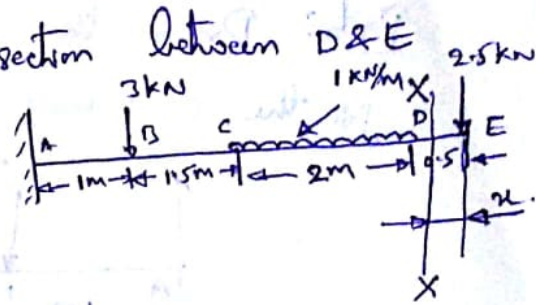 section between D&E
3kN 1kN/m X 2.5kN
A B C D E
1m 1.5m 2m 0.5
x.
X